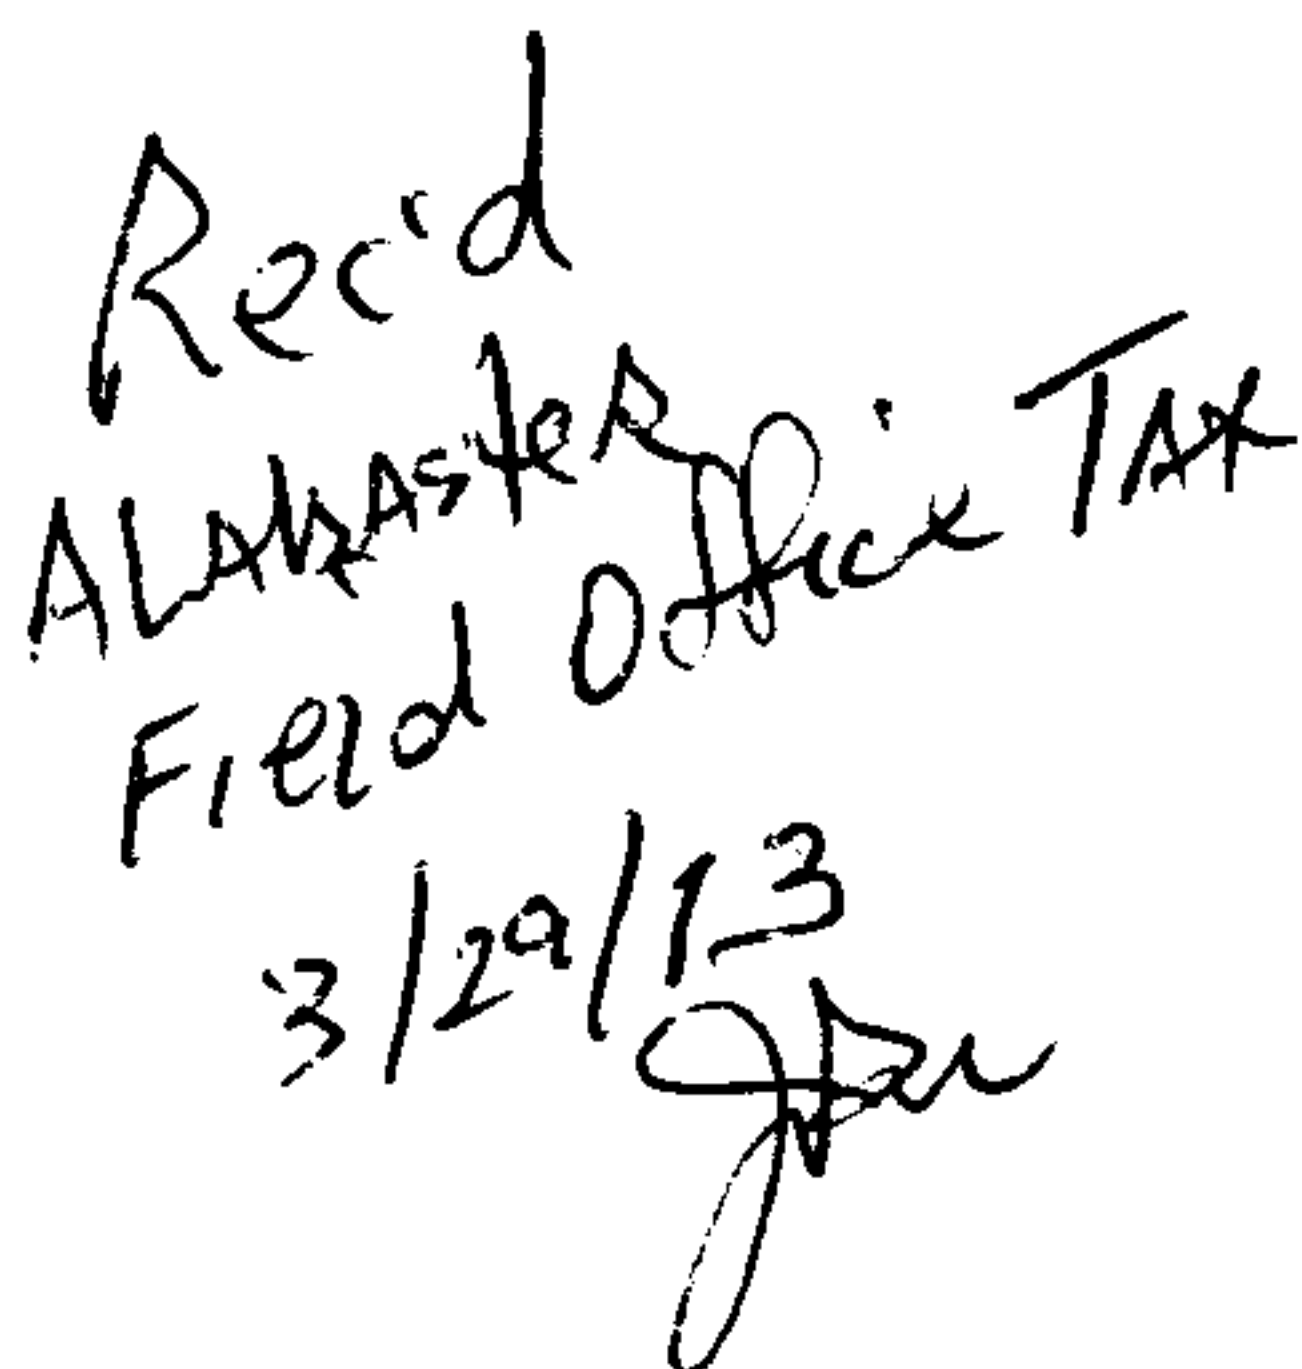 Rec'd
ALABASteR
FielD Office TAX
3/29/13